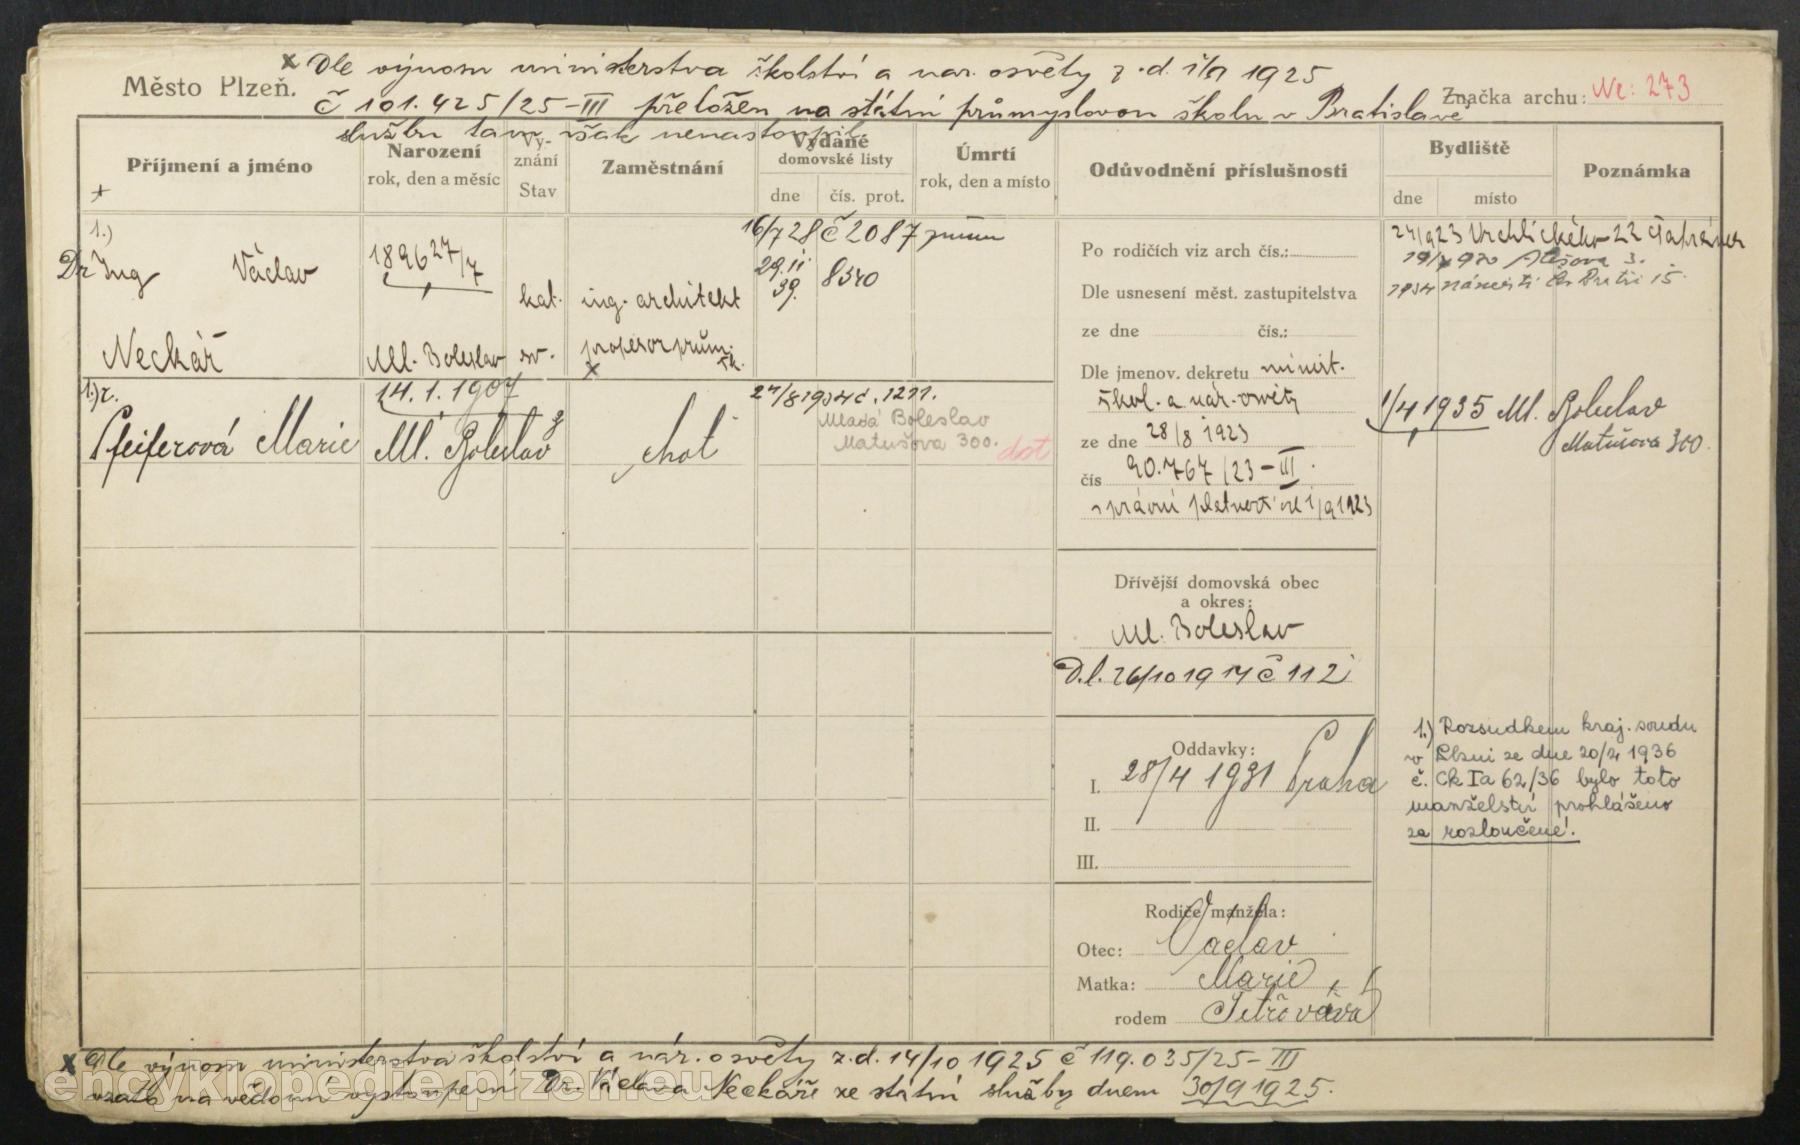 x Dle výnosu ministerstva školství a nár. osvěty z.d. 1/9 1925
Město Plzeň.
č 101.425/25-III přeložen na státní průmyslovou školu v Bratislavě
Značka archu: Ne: 273
službu tam však nenastoupil.
Příjmení a jméno
Narození
rok, den a měsíc
Vy-
znání
Stav
Zaměstnání
Vydané
domovské listy
dne
čís. prot.
Úmrtí
rok, den a místo
Odůvodnění příslušnosti
Bydliště
dne
místo
Poznámka
x
1.)
Dr Ing Václav
Neckář
1896 27/7
Ml. Boleslav
kat.
sv.
ing. architekt
profesor prům.
šk.
x
16/7 28 č 2087
29.11. 39. 8540
1.) r.
Pfeiferová Marie
14. 1. 1907
Ml. Boleslav
choť
27/8 1934 č. 1291.
Mladá Boleslav
Matušova 300.
Po rodičích viz arch čís.:
Dle usnesení měst. zastupitelstva
ze dne čís.:
Dle jmenov. dekretu minist.
škol. a nár. osvěty
ze dne 28/8 1923
čís 90.767/23-III.
s právní platností od 1/9 1923
Dřívější domovská obec
a okres:
Ml. Boleslav
D.l. 26/10 1914 č 112
Oddavky:
I. 28/4 1931 Praha
II.
III.
Rodiče manžela:
Otec: Václav
Matka: Marie
rodem
24/9 23 Vrchlického 22
Alešova 3.
1934 náměstí 15.
1/4 1935 Ml. Boleslav
Matušova 300.
1.) Rozsudkem kraj. soudu
v Plzni ze dne 20/4 1936
č. Ck Ia 62/36 bylo toto
manželství prohlášeno
za rozloučené.
x Dle výnosu ministerstva školství a nár. osvěty z.d. 14/10 1925 č 119.035/25-III
vzato na vědomí vystoupení Dr. Václava Neckáře ze státní služby dnem 30/9 1925.
encyklopedie.plzen.eu